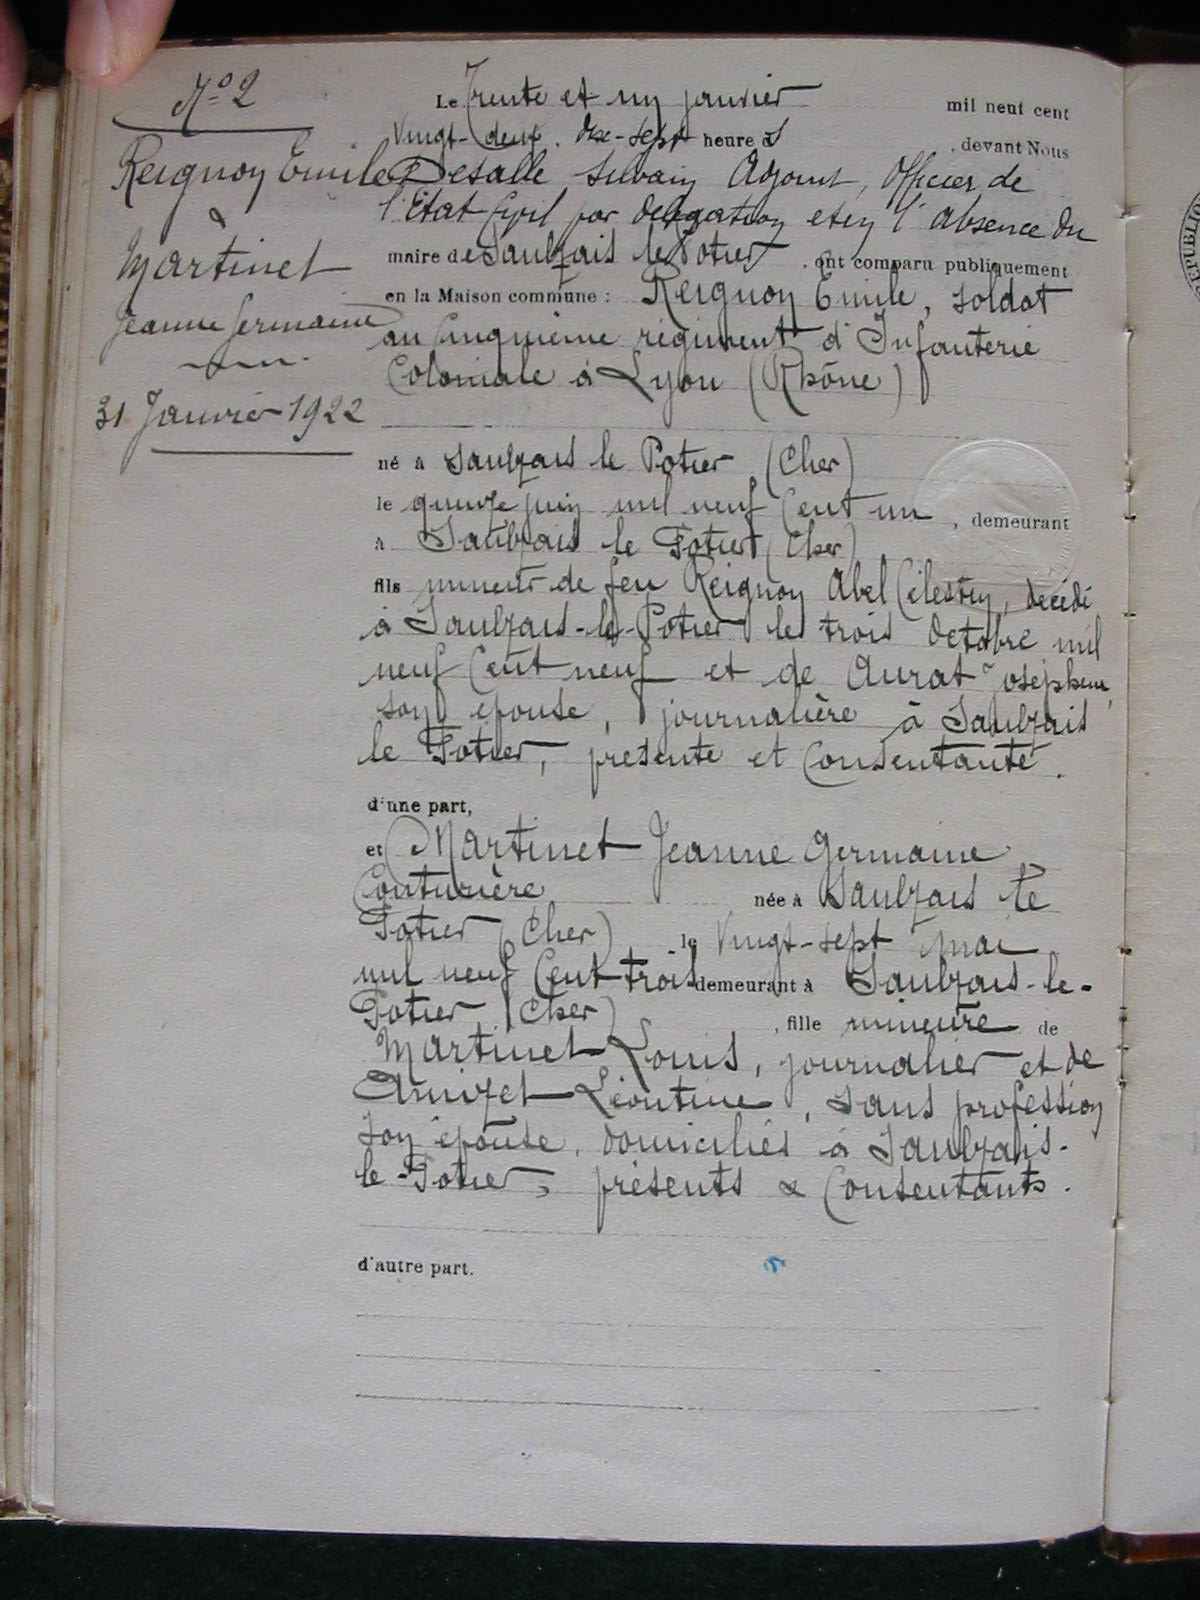 N° 2
Reignoy Emile
&
Martinet
Jeanne Germaine
31 Janvier 1922
Le Trente et un janvier mil neuf cent
vingt-deux, dix-sept heures, devant Nous
Desalle Silvain Adjoint, Officier de
l'Etat Civil par délégation et en l'absence du
maire de Saulzais le Potier, ont comparu publiquement
en la Maison commune : Reignoy Emile, soldat
au Cinquième régiment d'Infanterie
Coloniale à Lyon (Rhône)
né à Saulzais le Potier (Cher)
le quinze juin mil neuf Cent un, demeurant
à Saulzais le Potier (Cher)
fils mineur de feu Reignoy Abel Célestin, décédé
à Saulzais-le-Potier le trois Octobre mil
neuf Cent neuf et de Aurat Joséphine,
son épouse, journalière à Saulzais
le Potier, présente et Consentante.
d'une part,
et Martinet Jeanne Germaine
Couturière née à Saulzais le
Potier (Cher) le Vingt-sept mai
mil neuf Cent trois demeurant à Saulzais-le-
Potier (Cher), fille mineure de
Martinet Louis, journalier et de
Amizet Léontine, sans profession
son épouse, domiciliés à Saulzais-
le-Potier, présents & Consentants.
d'autre part.